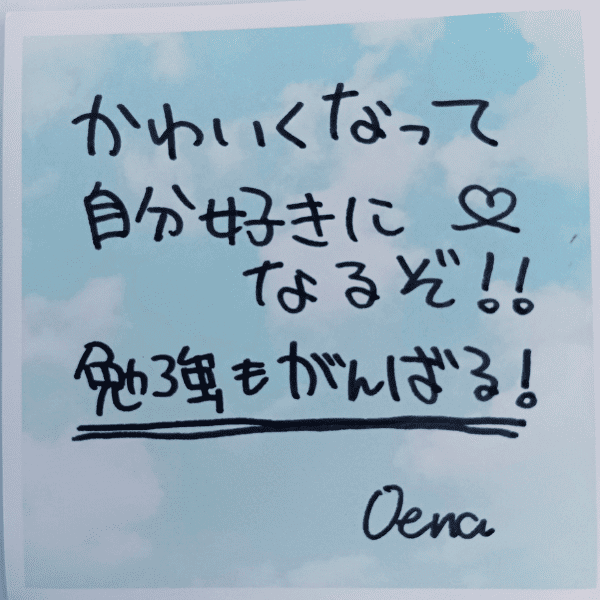 かわいくなって
自分好きに♡
なるぞ!!
勉強もがんばる!
Oena